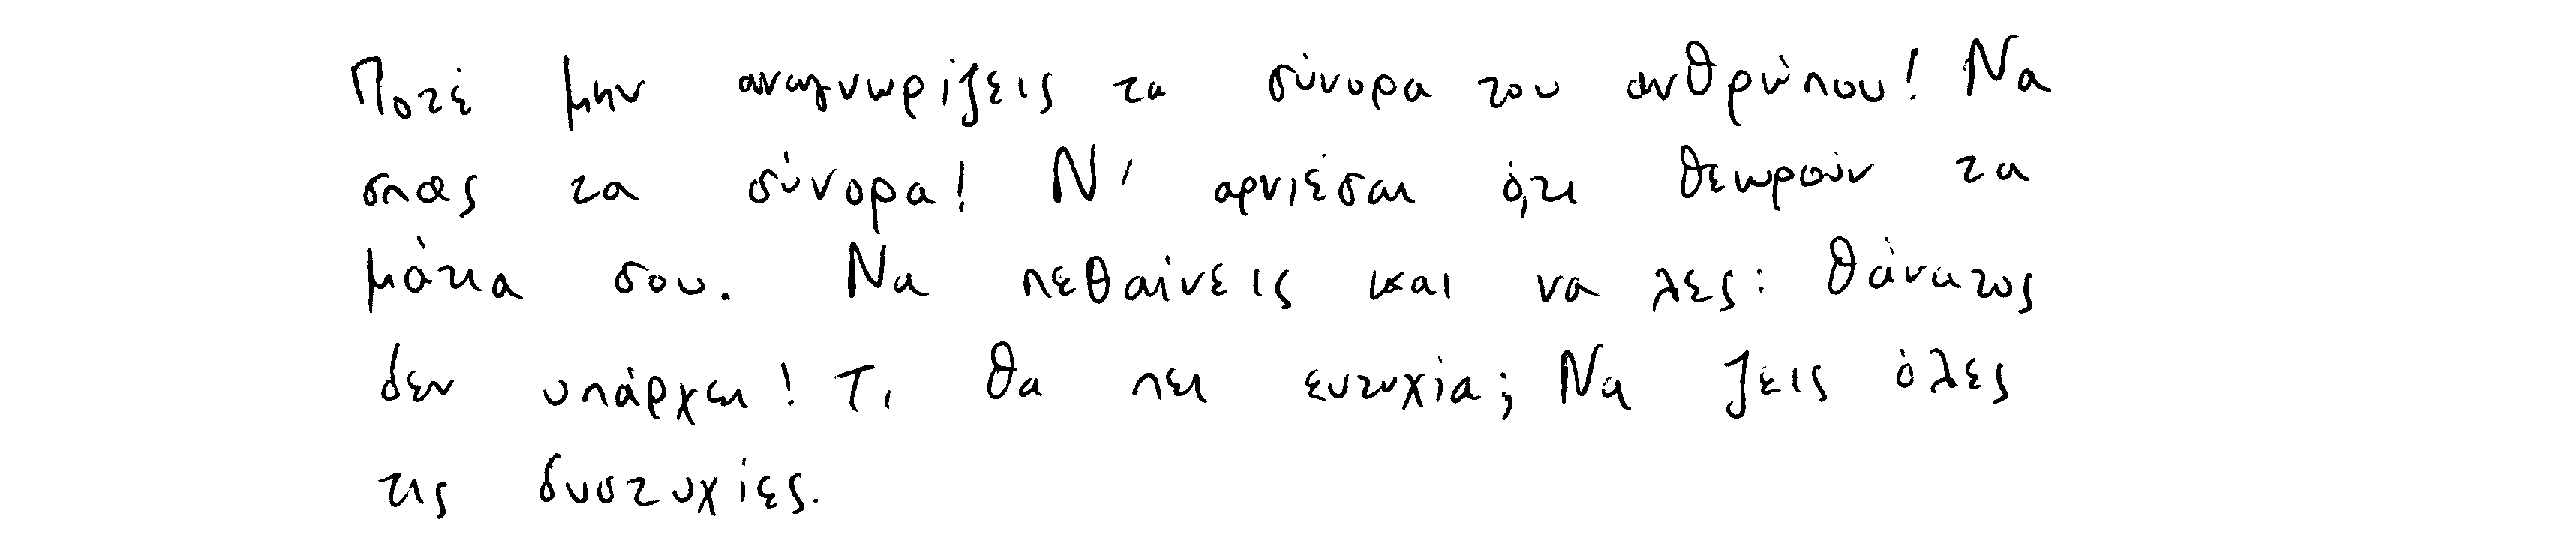 Ποτέ μην αναγνωρίζεις τα σύνορα του ανθρώπου! Να
σπας τα σύνορα! Ν' αρνιέσαι ό,τι θεωρούν τα
μάτια σου. Να πεθαίνεις και να λες: θάνατος
δεν υπάρχει! Τι θα πει ευτυχία; Να ζεις όλες
τις δυστυχίες.